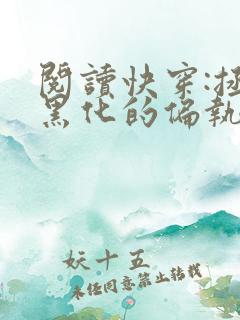 閱讀快穿:拯
黑化的偏執
妖十五
未經同意禁止轉載